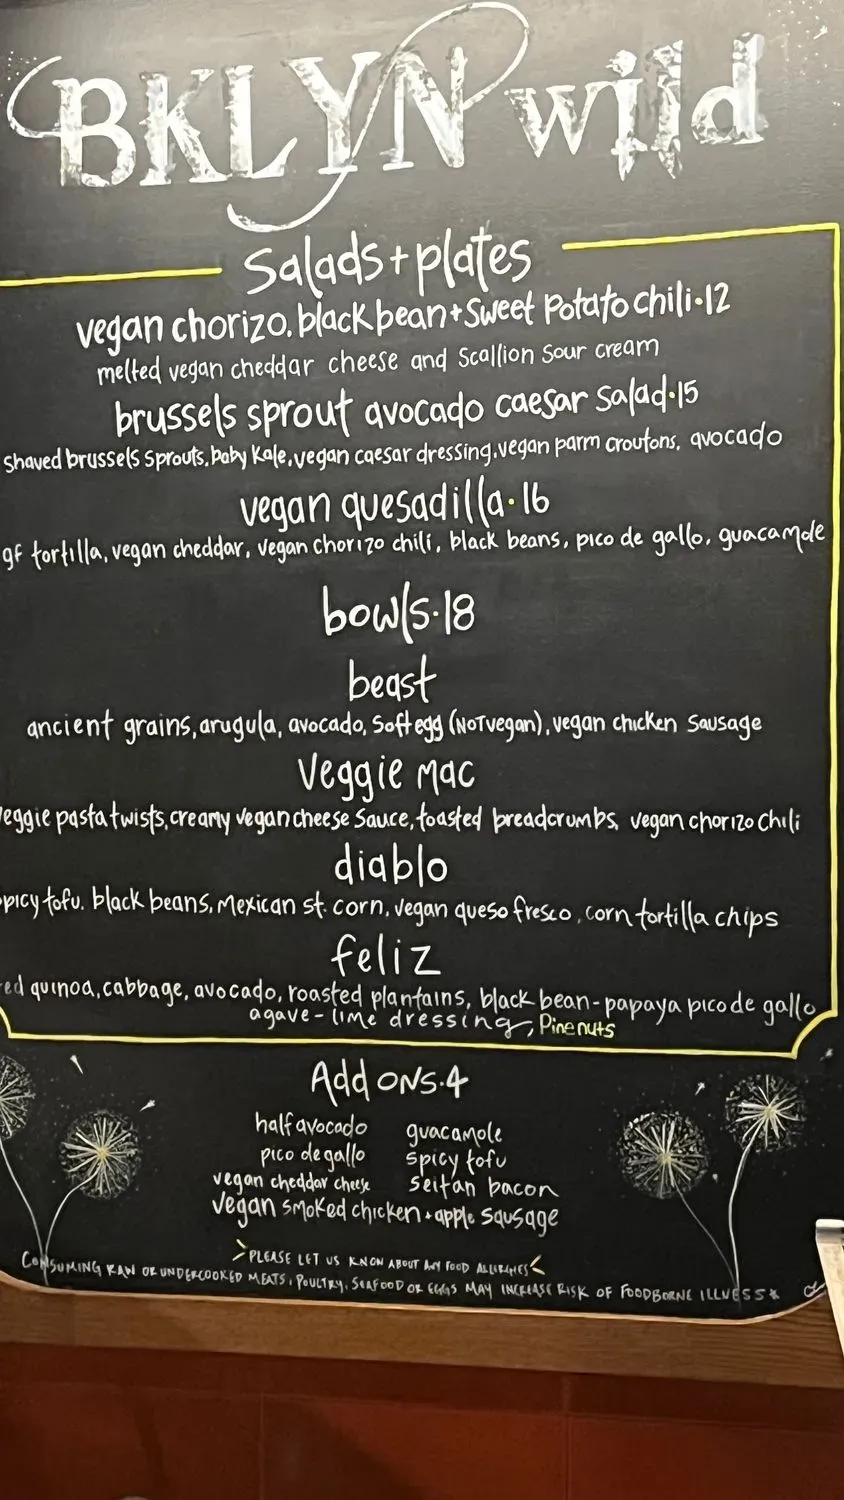 BKLYN wild
Salads + plates
vegan chorizo, black bean + sweet potato chili · 12
melted vegan cheddar cheese and scallion sour cream
brussels sprout avocado caesar salad · 15
shaved brussels sprouts, baby kale, vegan caesar dressing, vegan parm croutons, avocado
vegan quesadilla · 16
gf tortilla, vegan cheddar, vegan chorizo chili, black beans, pico de gallo, guacamole
bowls · 18
beast
ancient grains, arugula, avocado, soft egg (NOT vegan), vegan chicken sausage
Veggie mac
veggie pasta twists, creamy vegan cheese sauce, toasted breadcrumbs, vegan chorizo chili
diablo
spicy tofu, black beans, Mexican st. corn, vegan queso fresco, corn tortilla chips
feliz
red quinoa, cabbage, avocado, roasted plantains, black bean-papaya pico de gallo
agave-lime dressing, Pine nuts
Add ONS · 4
half avocado guacamole
pico de gallo spicy tofu
vegan cheddar cheese seitan bacon
vegan smoked chicken + apple sausage
PLEASE LET US KNOW ABOUT ANY FOOD ALLERGIES
CONSUMING RAW OR UNDERCOOKED MEATS, POULTRY, SEAFOOD OR EGGS MAY INCREASE RISK OF FOODBORNE ILLNESS*